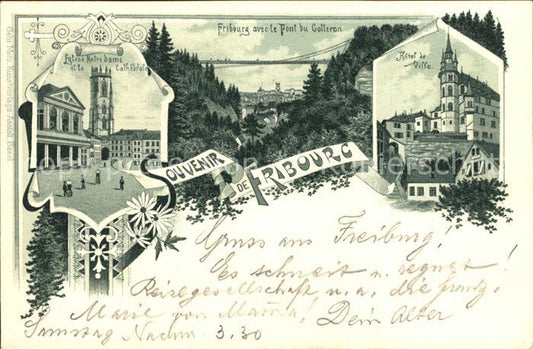 Fribourg avec le Pont du Gotteron
Eglise Notre Dame
et la Cathédrale
Hôtel de
Ville.
SOUVENIR
DE FRIBOURG
Gruss aus Freiburg!
Es schneit u. regnet!
Reisegesellschaft u. a. die
Marie von Mama! Dein Alter
Samstag Nachm. 3.30